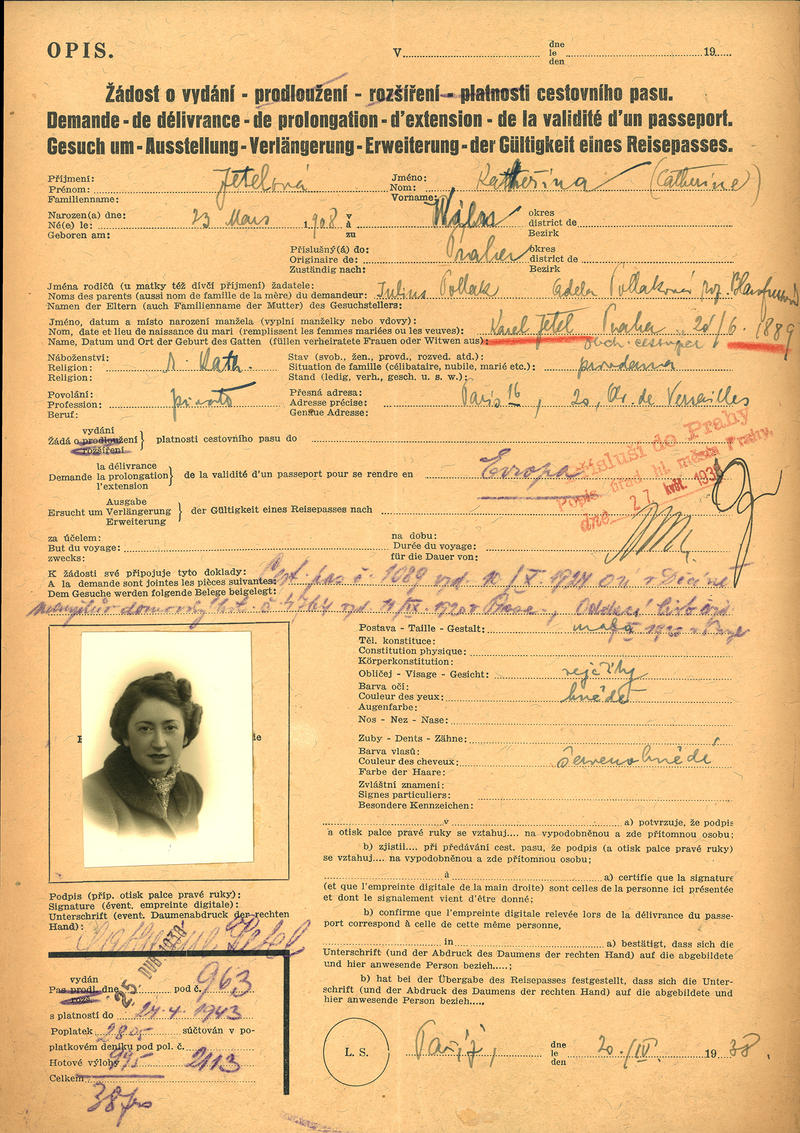 OPIS.
V dne
le
den 19
Žádost o vydání - prodloužení - rozšíření - platnosti cestovního pasu.
Demande - de délivrance - de prolongation - d'extension - de la validité d'un passeport.
Gesuch um - Ausstellung - Verlängerung - Erweiterung - der Gültigkeit eines Reisepasses.
Příjmení: Jméno:
Prénom: Jetelová Nom: Kateřina (Catherine)
Familienname: Vorname:
Narozen(a) dne: v okres
Né(e) le: 23 Mars 1908 à district de
Geboren am: zu Bezirk
Příslušný(á) do: okres
Originaire de: Praha district de
Zuständig nach: Bezirk
Jména rodičů (u matky též dívčí příjmení) žadatele:
Noms des parents (aussi nom de famille de la mère) du demandeur: Julius Pollak Adela Pollaková roz.
Namen der Eltern (auch Familienname der Mutter) des Gesuchstellers:
Jméno, datum a místo narození manžela (vyplní manželky nebo vdovy):
Nom, date et lieu de naissance du mari (remplissent les femmes mariées ou les veuves): Karel Jetel Praha /6. 1889
Name, Datum und Ort der Geburt des Gatten (füllen verheiratete Frauen oder Witwen aus): obch. cestující
Náboženství: Stav (svob., žen., provd., rozved. atd.):
Religion: ř. Kath. Situation de famille (célibataire, nubile, marié etc.): provdaná
Religion: Stand (ledig, verh., gesch. u. s. w.):
Povolání: Přesná adresa:
Profession: privato Adresse précise: Paris 16, 20, Av. de Versailles
Beruf: Genaue Adresse:
vydání
Žádá o prodloužení platnosti cestovního pasu do
rozšíření
la délivrance
Demande la prolongation de la validité d'un passeport pour se rendre en Evropa
l'extension
Přísluší do Prahy
Popis. úřad hl. města Prahy,
dne 27 květ. 193
Ausgabe
Ersucht um Verlängerung der Gültigkeit eines Reisepasses nach
Erweiterung
za účelem: na dobu:
But du voyage: Durée du voyage:
zwecks: für die Dauer von:
K žádosti své připojuje tyto doklady:
A la demande sont jointes les pièces suivantes: Cest. pas č. 1089 vyd. 10/X. 1927 v Děčíně
Dem Gesuche werden folgende Belege beigelegt:
domovský list. č. vyd. Oddací list
Postava - Taille - Gestalt: malá
Těl. konstituce:
Constitution physique:
Körperkonstitution:
Obličej - Visage - Gesicht: vejčitý
Barva očí:
Couleur des yeux: hnědé
Augenfarbe:
Nos - Nez - Nase:
Zuby - Dents - Zähne:
Barva vlasů:
Couleur des cheveux: červenohnědé
Farbe der Haare:
Zvláštní znamení:
Signes particuliers:
Besondere Kennzeichen:
v a) potvrzuje, že podpis
a otisk palce pravé ruky se vztahuj.... na vypodobněnou a zde přítomnou osobu;
b) zjistil.... při předávání cest. pasu, že podpis (a otisk palce pravé ruky)
se vztahuj.... na vypodobněnou a zde přítomnou osobu;
à a) certifie que la signature
(et que l'empreinte digitale de la main droite) sont celles de la personne ici présentée
et dont le signalement vient d'être donné;
b) confirme que l'empreinte digitale relevée lors de la délivrance du passe-
port correspond à celle de cette même personne,
in a) bestätigt, dass sich die
Unterschrift (und der Abdruck des Daumens der rechten Hand) auf die abgebildete
und hier anwesende Person bezieh.....;
b) hat bei der Übergabe des Reisepasses festgestellt, dass sich die Unter-
schrift (und der Abdruck des Daumens der rechten Hand) auf die abgebildete und
hier anwesende Person bezieh....,
Podpis (příp. otisk palce pravé ruky):
Signature (évent. empreinte digitale):
Unterschrift (event. Daumenabdruck der rechten
Hand): Catherine Jetel
25 DUB 1938
vydán
Pas prodl. dne pod č. 963
rozš.
s platností do 24.4.1943
Poplatek 2805 súčtován v po-
platkovém deníku pod pol. č.
Hotové výlohy 995 2113
Celkem
38 frs
L. S.
Paříž, dne
le
den 20./IV. 1938.